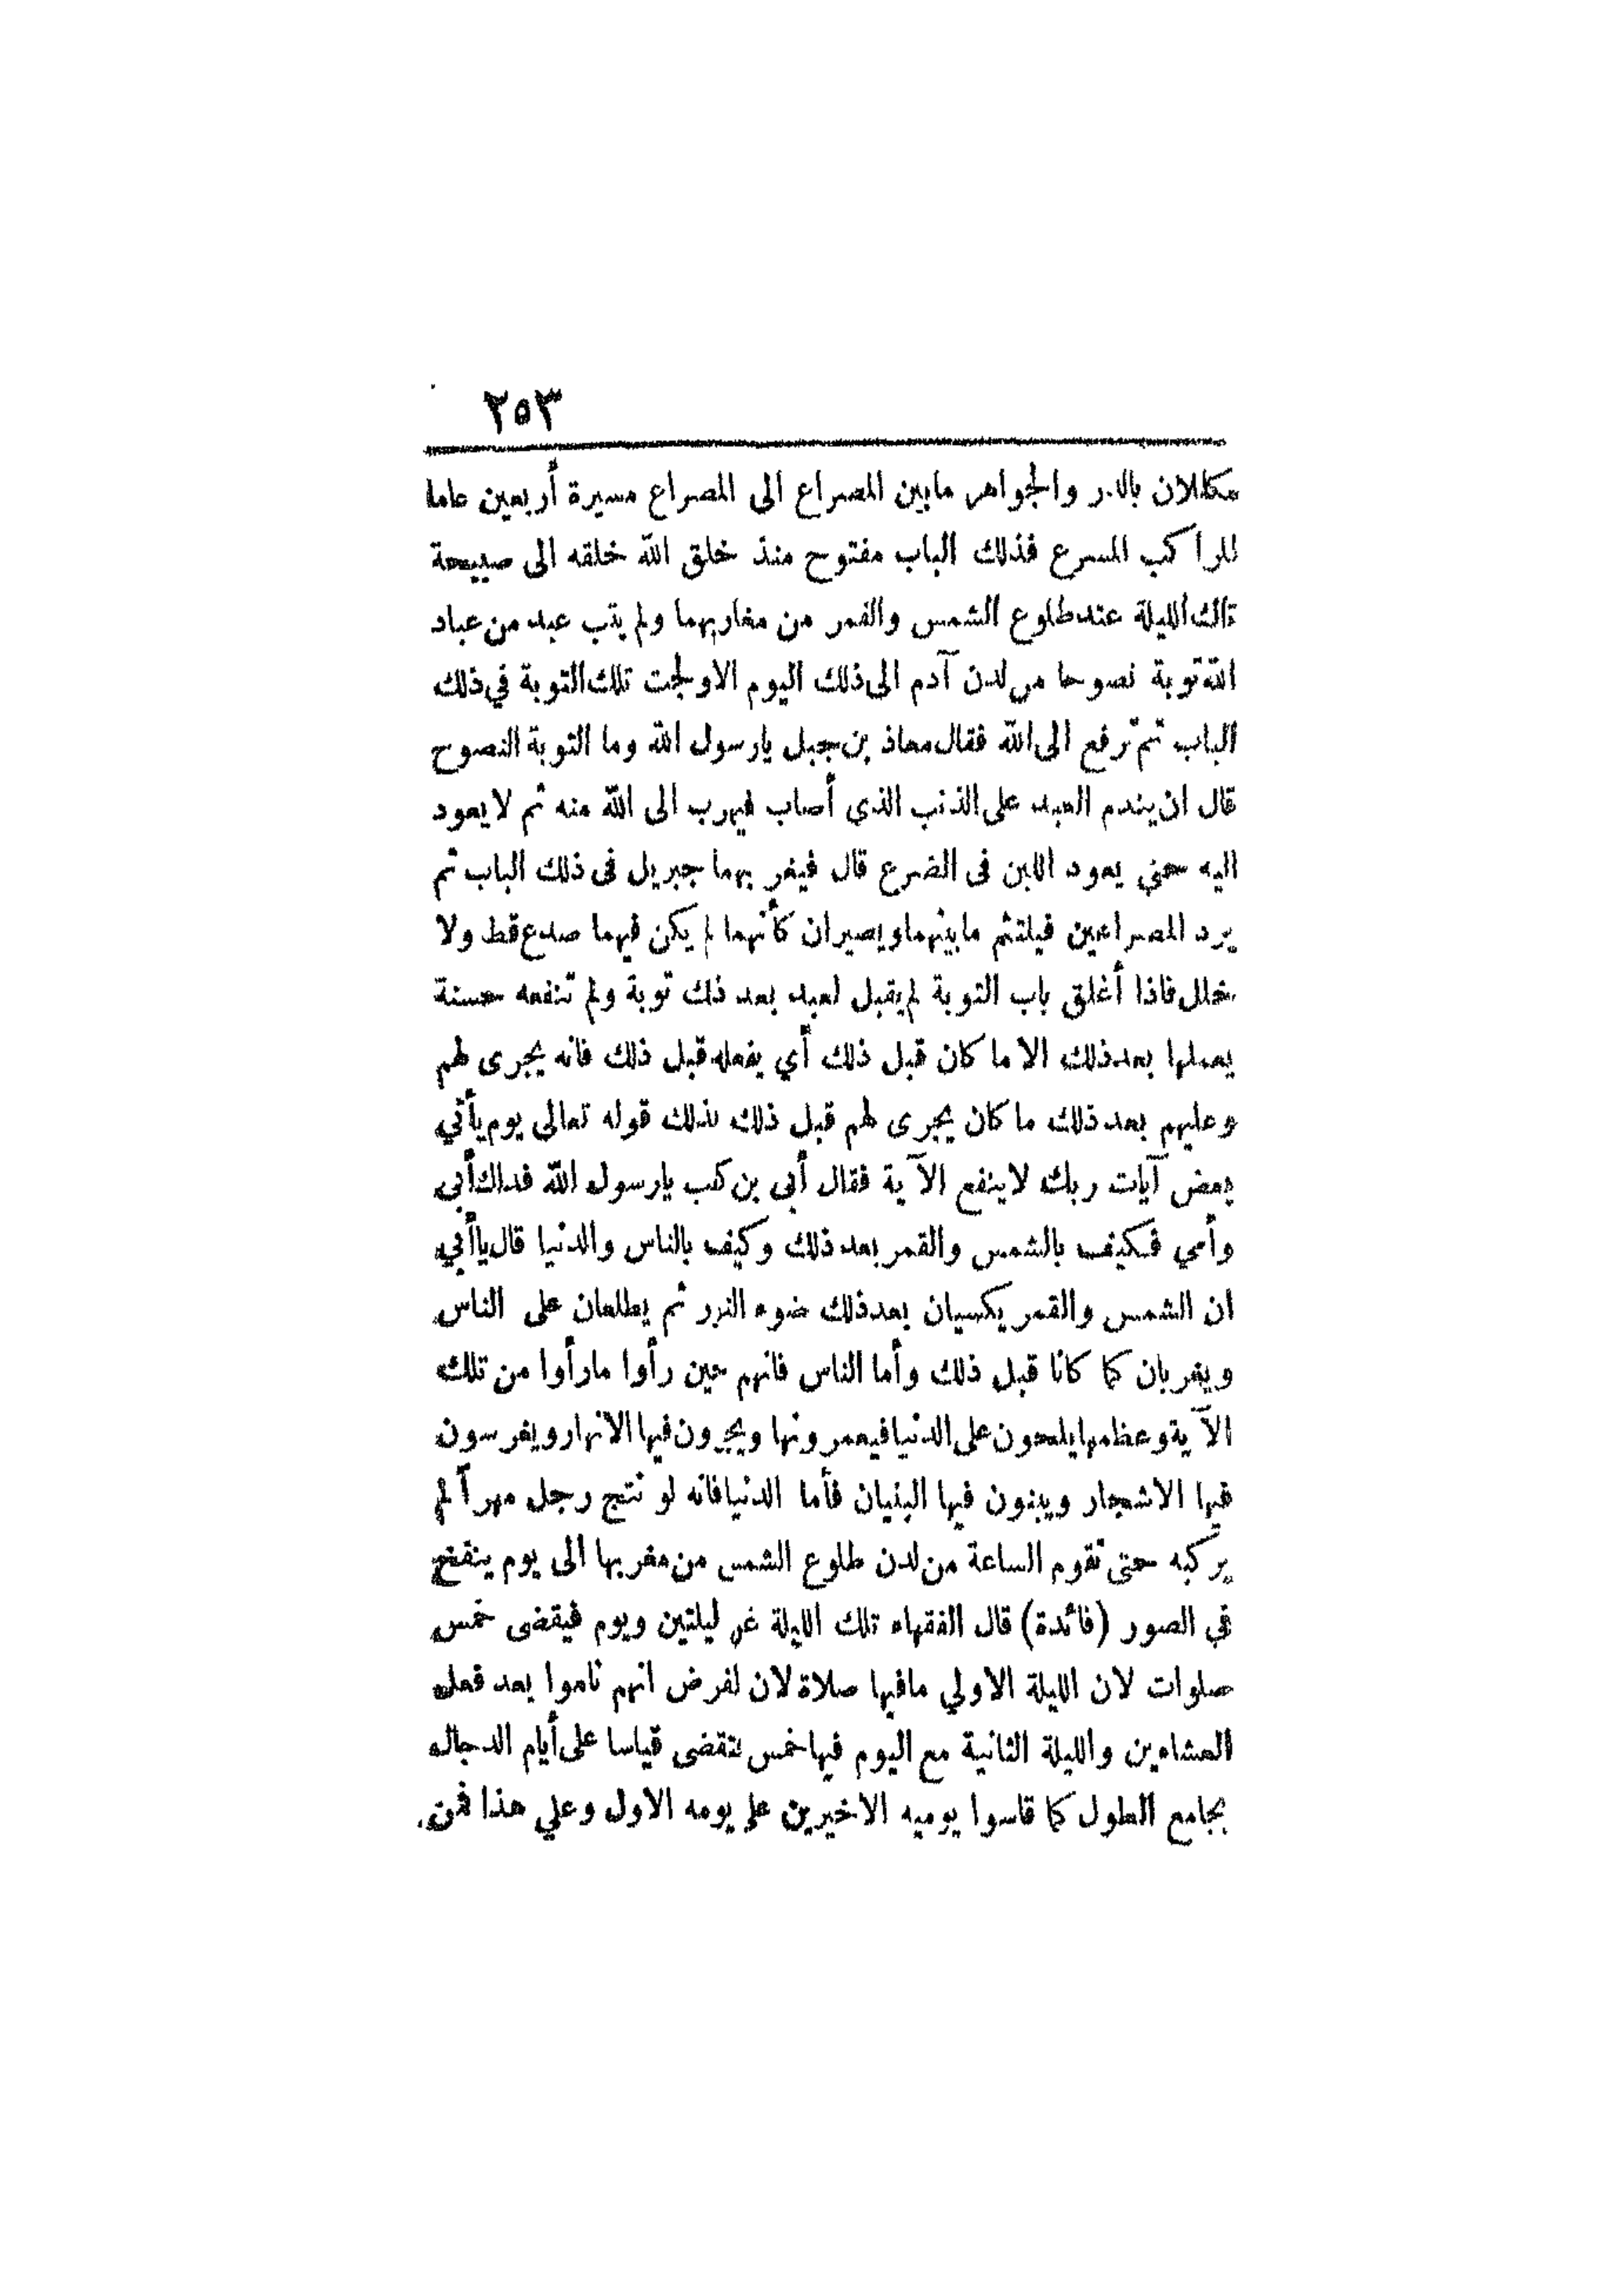 ٢٥٣
مكللان بالدر والجواهر مابين المصراع الى المصراع مسيرة أربعين عاما
للراكب المسرع فذلك الباب مفتوح منذ خلق الله خلقه الى صبيحة
تلك الليلة عند طلوع الشمس والقمر من مغاربهما ولم يتب عبد من عباد
الله توبة نصوحا من لدن آدم الى ذلك اليوم الا ولجت تلك التوبة في ذلك
الباب ثم ترفع الى الله فقال معاذ بن جبل يارسول الله وما التوبة النصوح
قال ان يندم العبد على الذنب الذي أصاب فيهرب الى الله منه ثم لا يعود
اليه حتي يعود اللبن فى الضرع قال فيغر بهما جبريل فى ذلك الباب ثم
يرد المصراعين فيلتئم مابينهما ويصيران كأنهما لم يكن فيهما صدع قط ولا
خلل فاذا أغلق باب التوبة لم يقبل لعبد بعد ذلك توبة ولم تنفعه حسنة
يعملها بعد ذلك الا ما كان قبل ذلك أي يفعله قبل ذلك فانه يجرى لهم
وعليهم بعد ذلك ما كان يجرى لهم قبل ذلك لذلك قوله تعالى يوم يأتي
بعض آيات ربك لا ينفع الآية فقال أبى بن كعب يارسول الله فداك أبى
وأمي فكيف بالشمس والقمر بعد ذلك وكيف بالناس والدنيا قال ياأبي
ان الشمس والقمر يكسيان بعد ذلك ضوء النور ثم يطلعان على الناس
ويغربان كما كانا قبل ذلك وأما الناس فانهم حين رأوا مارأوا من تلك
الآية وعظمها يلحون على الدنيا فيعمرونها ويجرون فيها الانهار ويغرسون
فيها الاشجار ويبنون فيها البنيان فأما الدنيا فانه لو نتج رجل مهرا لم
يركبه حتى تقوم الساعة من لدن طلوع الشمس من مغربها الى يوم ينفخ
في الصور (فائدة) قال الفقهاء تلك الليلة عن ليلتين ويوم فيقضى خمس
صلوات لان الليلة الاولي مافيها صلاة لان لفرض انهم ناموا بعد فعل
العشاءين والليلة الثانية مع اليوم فيها خمس تقضى قياسا على أيام الدجال
بجامع الطول كما قاسوا يوميه الاخيرين على يومه الاول وعلي هذا فمن